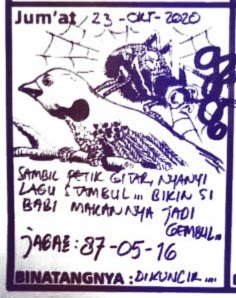 Jum'at, 23-OKT-2020
SAMBIL PETIK GITAR, NYANYI
LAGU STAMBUL... BIKIN SI
BABI MAKANNYA JADI
GEMBUL...
JAGAE: 87-05-16
BINATANGNYA: DIKUNCIR....